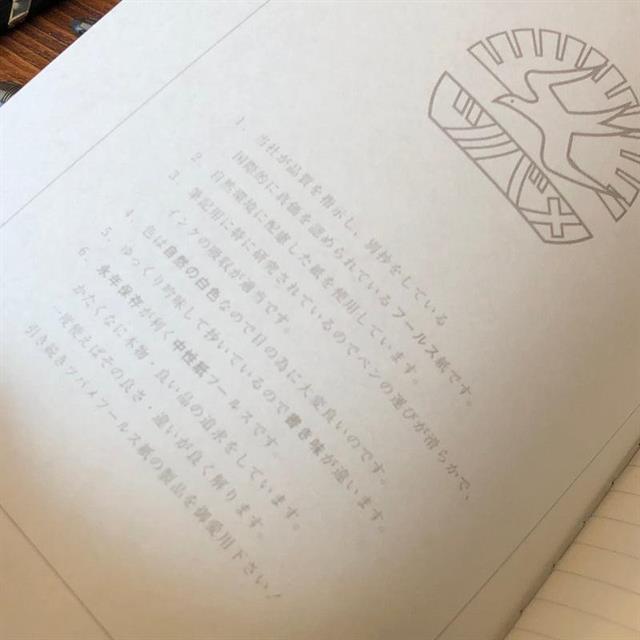 1. 当社が品質を指示し、別抄をしている
国際的に真価を認められているフールス紙です。
2. 自然環境に配慮した紙を使用しています。
3. 筆記用に特に研究されているのでペンの運びが滑らかで、
インクの吸収が適当です。
4. 色は自然の白色なので目の為に大変良いのです。
5. ゆっくり抄紙して抄いているので書き味が違います。
6. 永年保存が利く中性紙フールスです。
かたくなに本物・良い品の追求をしています。
一度使えばその良さ・違いが良く解ります。
引き続きツバメフールス紙の製品を御愛用下さい。